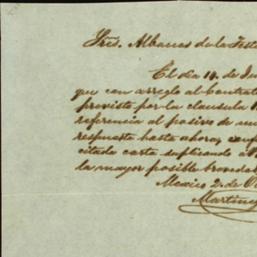 Sres. Albaceas de la Testa
El dia 14. de Ju
que con arreglo al Contrat
previsto por la clausula 1
referencia al posivo de
respuesta hasta ahora, conf
citada carta suplicando á
la mayor posible brevedad
Mexico 2. de O
Martinez